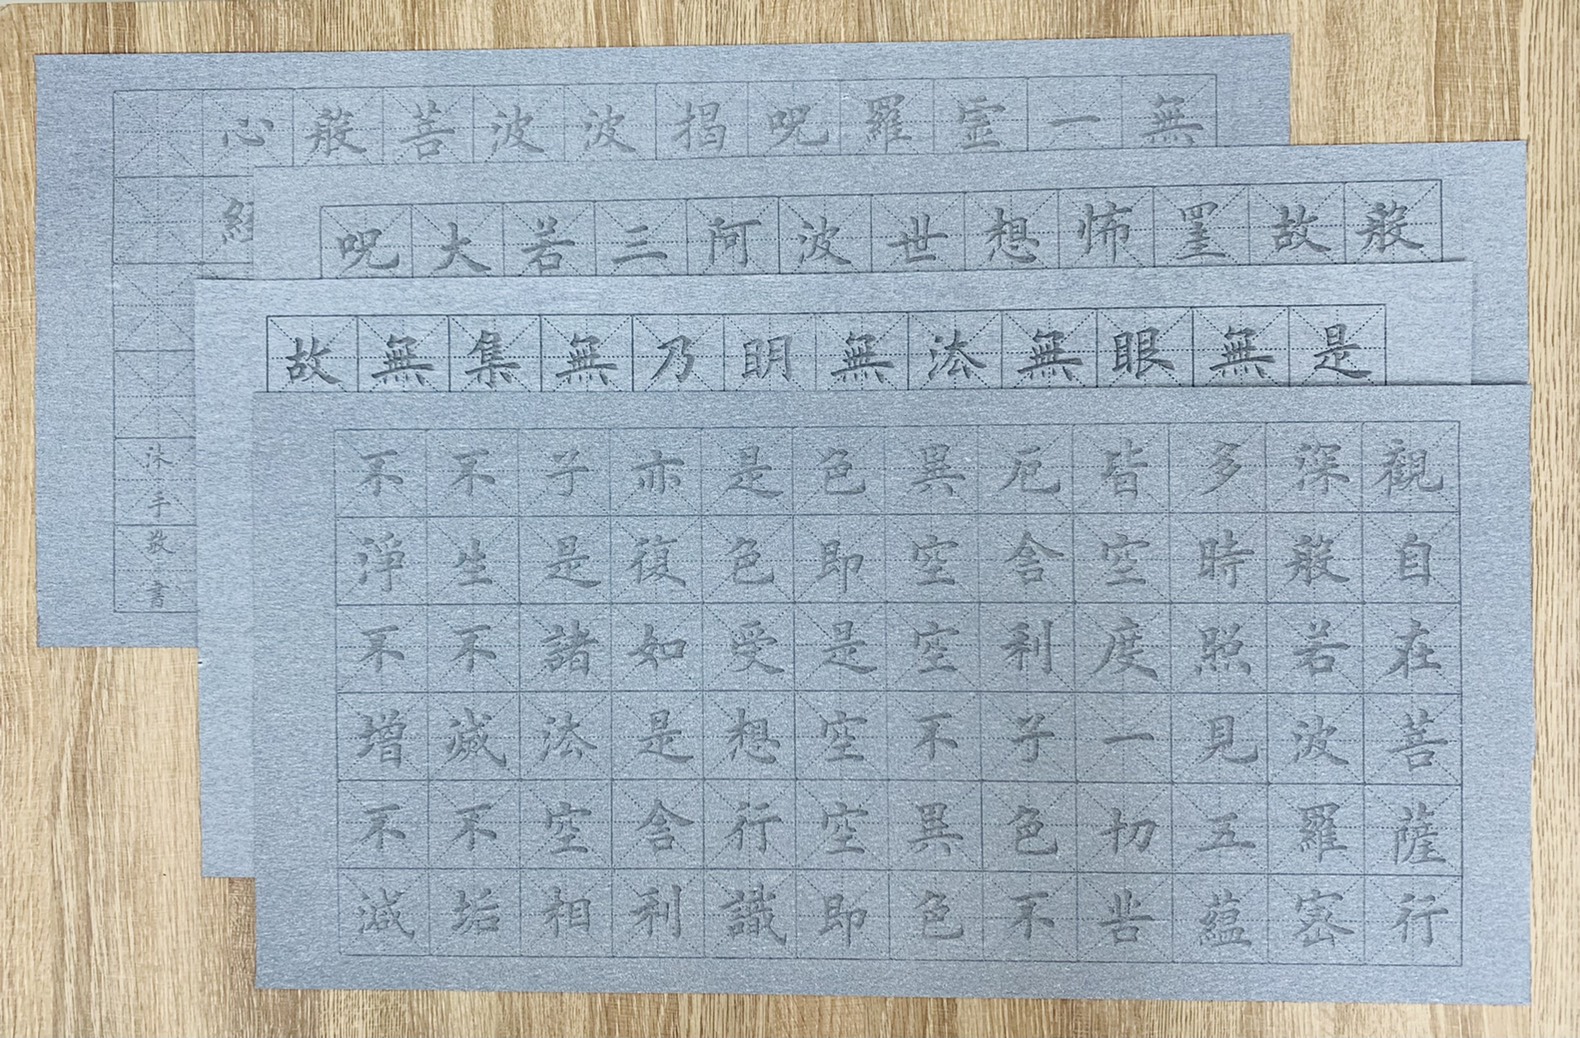 觀自在菩薩行
深般若波羅蜜
多時照見五蘊
皆空度一切苦
厄舍利子色不
異空空不異色
色即是空空即
是色受想行識
亦復如是舍利
子是諸法空相
不生不滅不垢
不淨不增不減
是無眼無法無明乃無集無故
般故罣怖想世波阿三若大呪
無一霊羅呪揭波波菩般
心經
沐手敬書